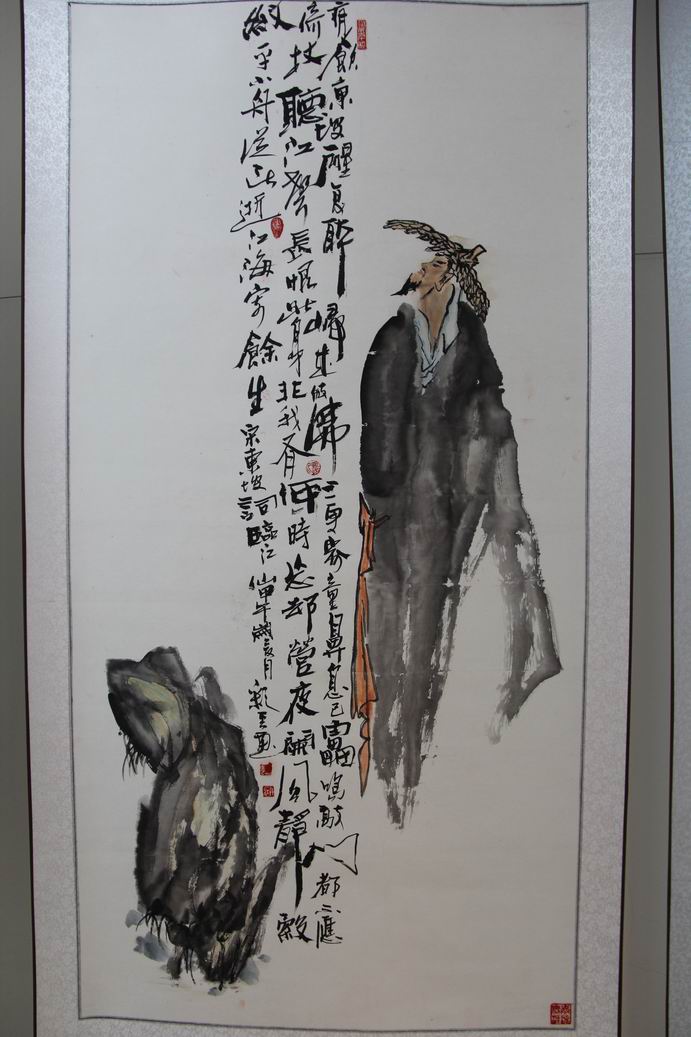 夜飲東坡醒复醉歸来仿彿三更家童鼻息已靁鳴敲門都不應
倚杖聽江聲長恨此身非我有何時忘却營夜闌風靜縠
紋平小舟從此逝江海寄餘生宋東坡詞臨江仙甲午歲夏月画